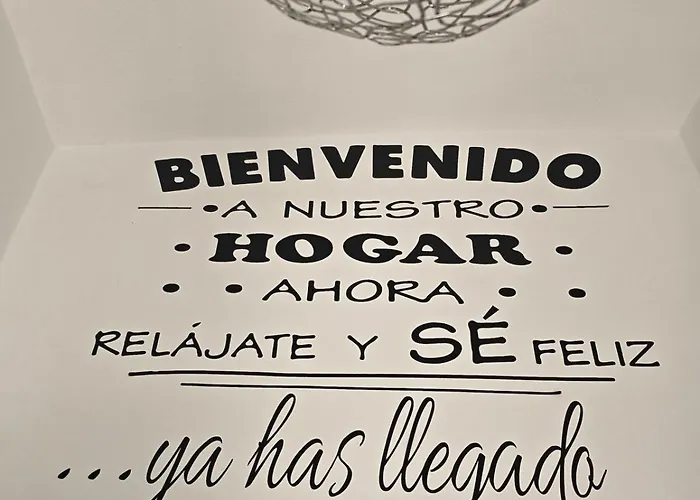 BIENVENIDO
A NUESTRO
HOGAR
AHORA
RELÁJATE Y SÉ FELIZ
...ya has llegado